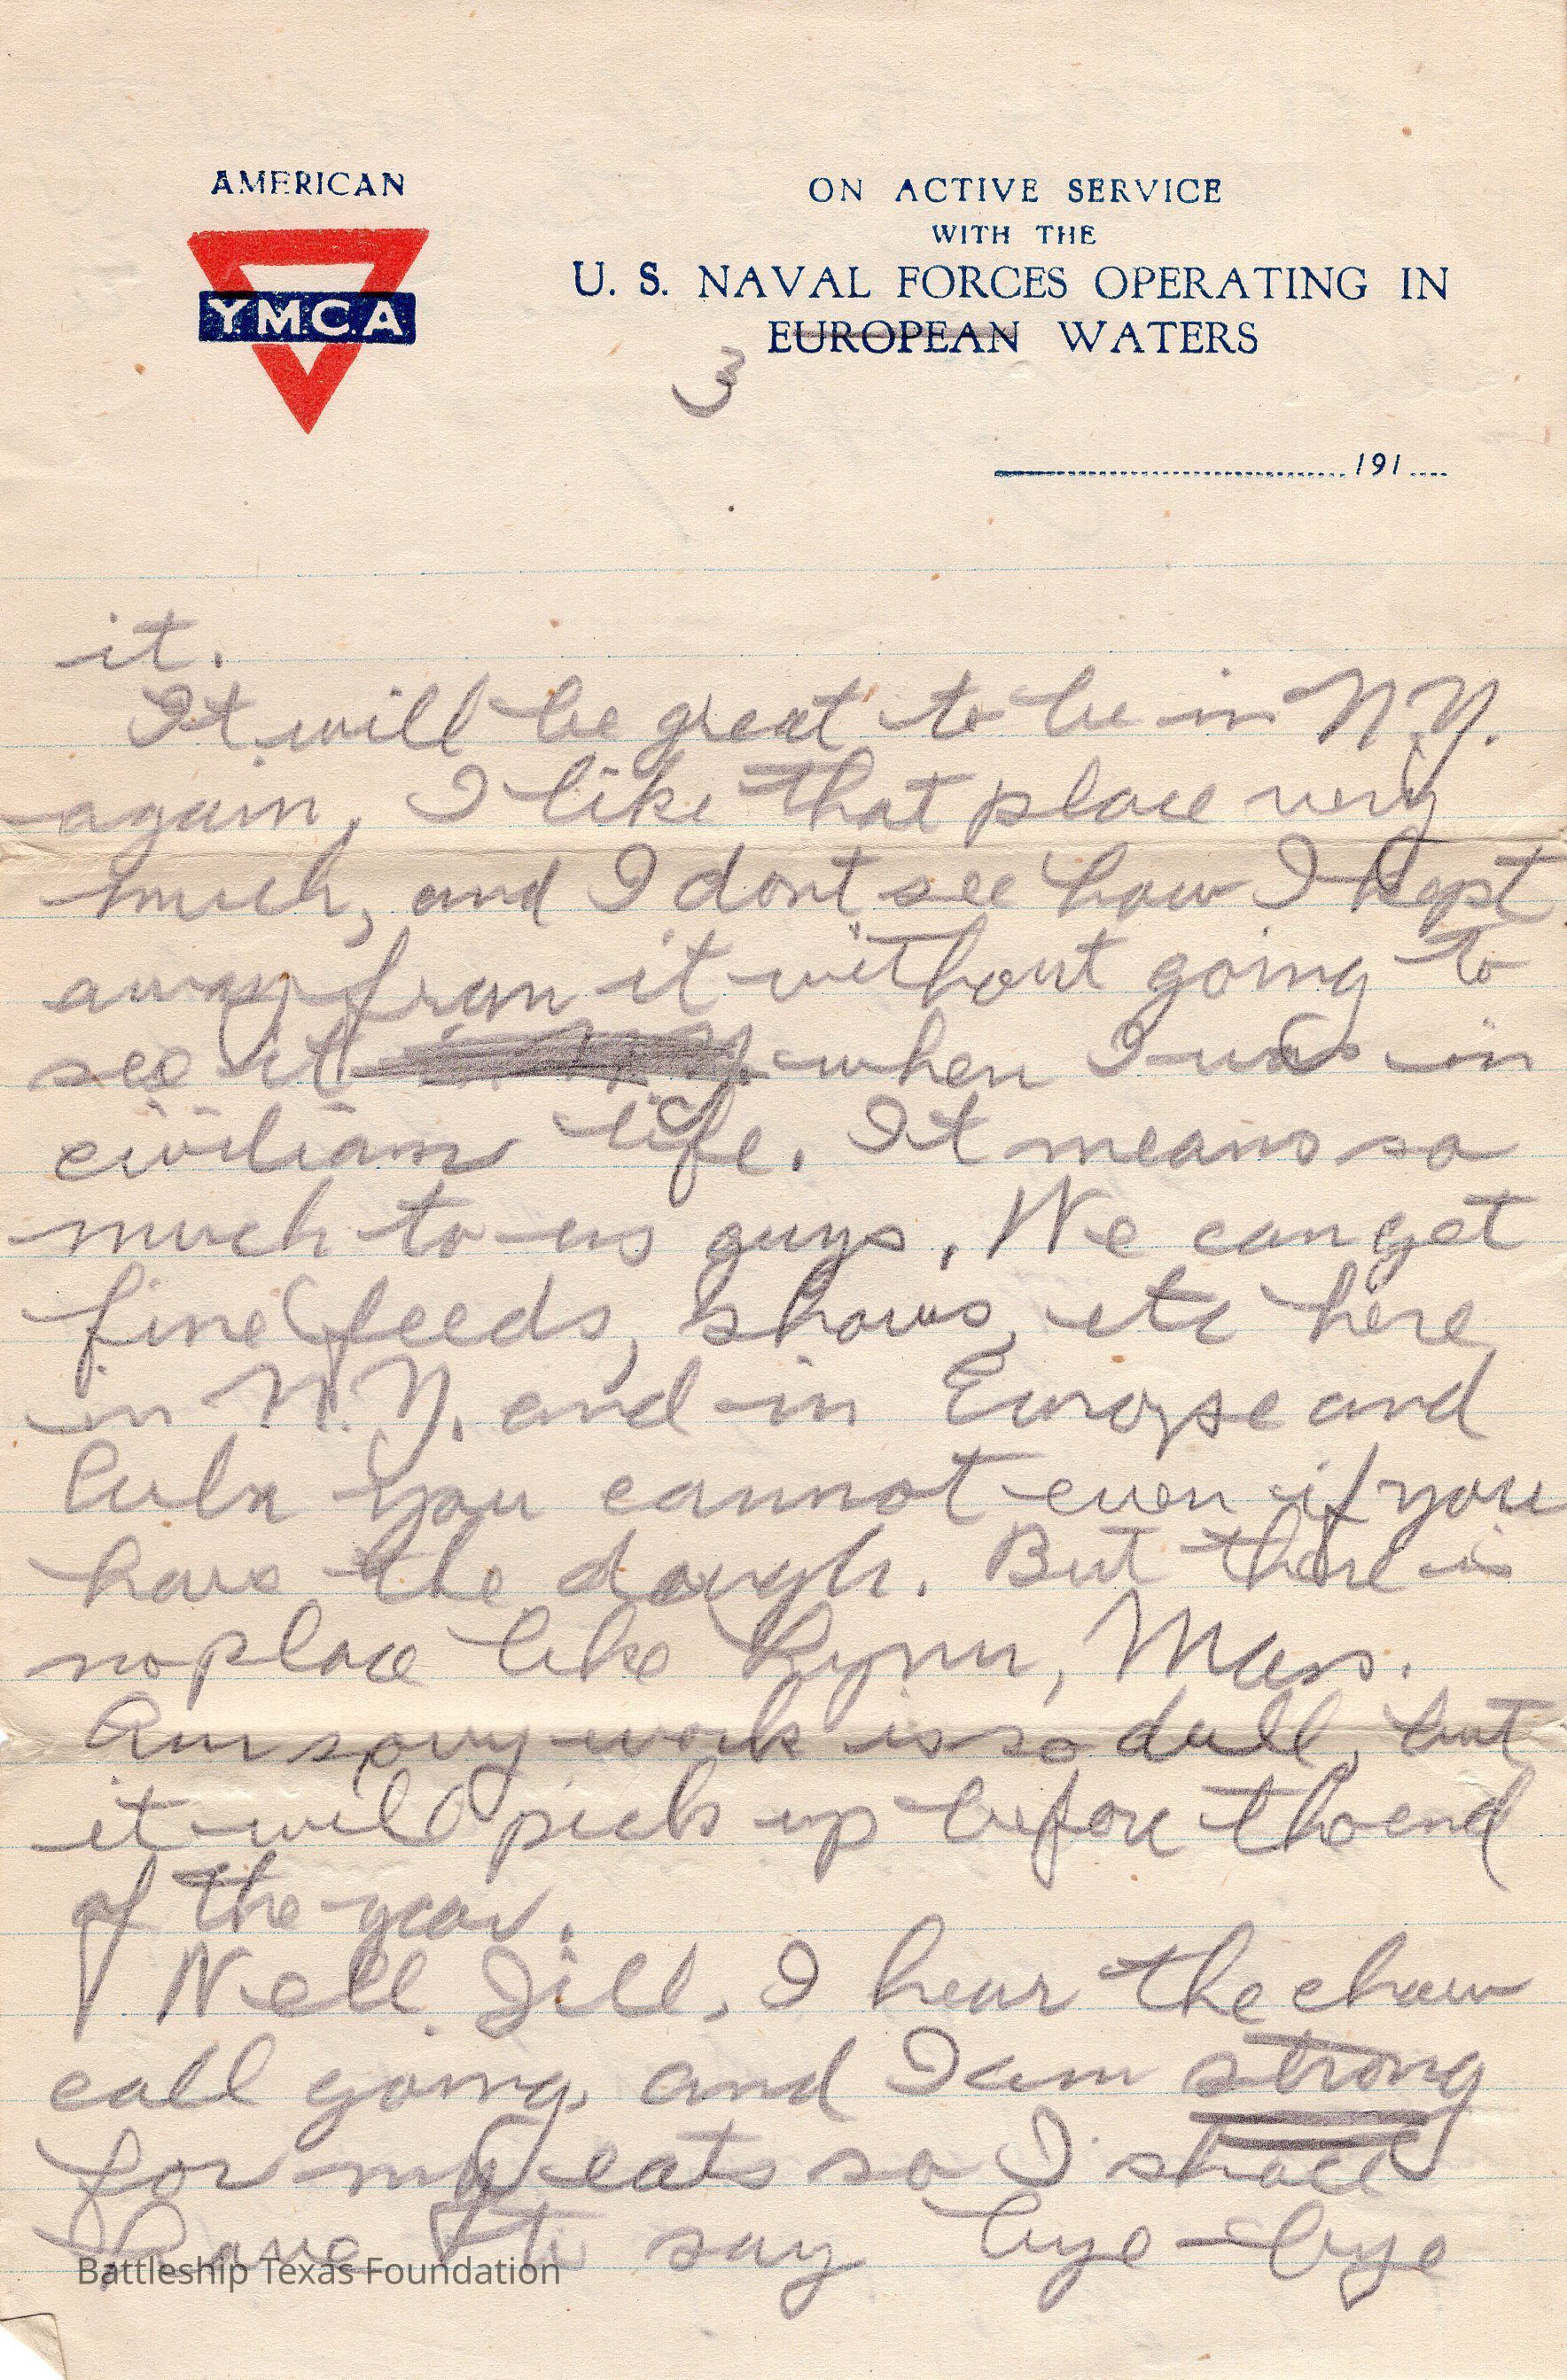 AMERICAN
YMCA
ON ACTIVE SERVICE
WITH THE
U. S. NAVAL FORCES OPERATING IN
EUROPEAN WATERS
3
191
it.
It will be great to be in N.Y.
again, I like that place very
much, and I dont see how I kept
away from it without going to
see it when I was in
civilian life. It means so
much to us guys. We can get
fine feeds, shows, etc here
in N.Y. and in Europe and
Cuba you cannot even if you
have the dough. But there is
no place like Lynn, Mass.
Am sorry work is so dull, but
it will pick up before the end
of the year.
Well Jill, I hear the chow
call going, and I am strong
for my eats so I shall
have to say bye-bye
Battleship Texas Foundation